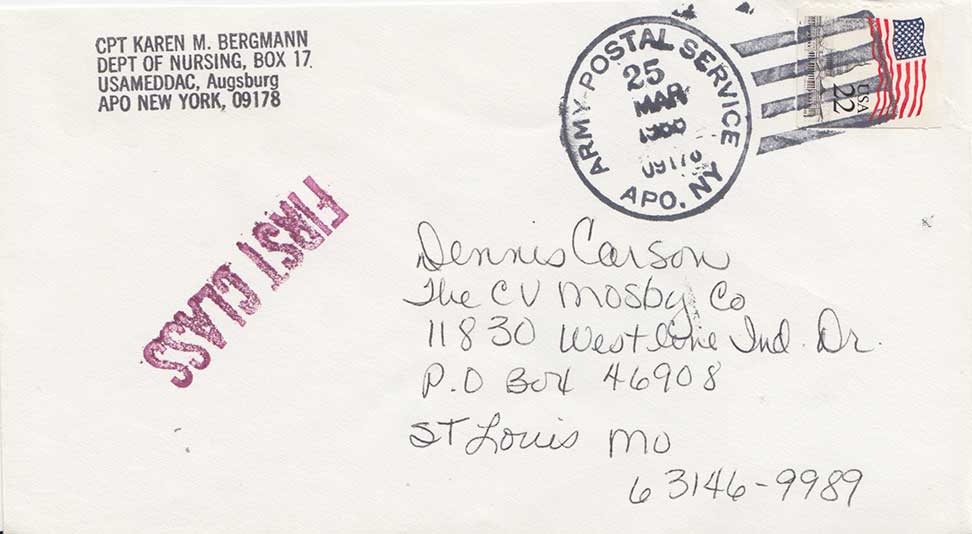 CPT KAREN M. BERGMANN
DEPT OF NURSING, BOX 17
USAMEDDAC, Augsburg
APO NEW YORK, 09178
ARMY POSTAL SERVICE
25
MAR
APO, NY
USA
22
FIRST CLASS
Dennis Carson
The CV Mosby Co
11830 Westline Ind. Dr.
P.O Box 46908
ST Louis MO
63146-9989